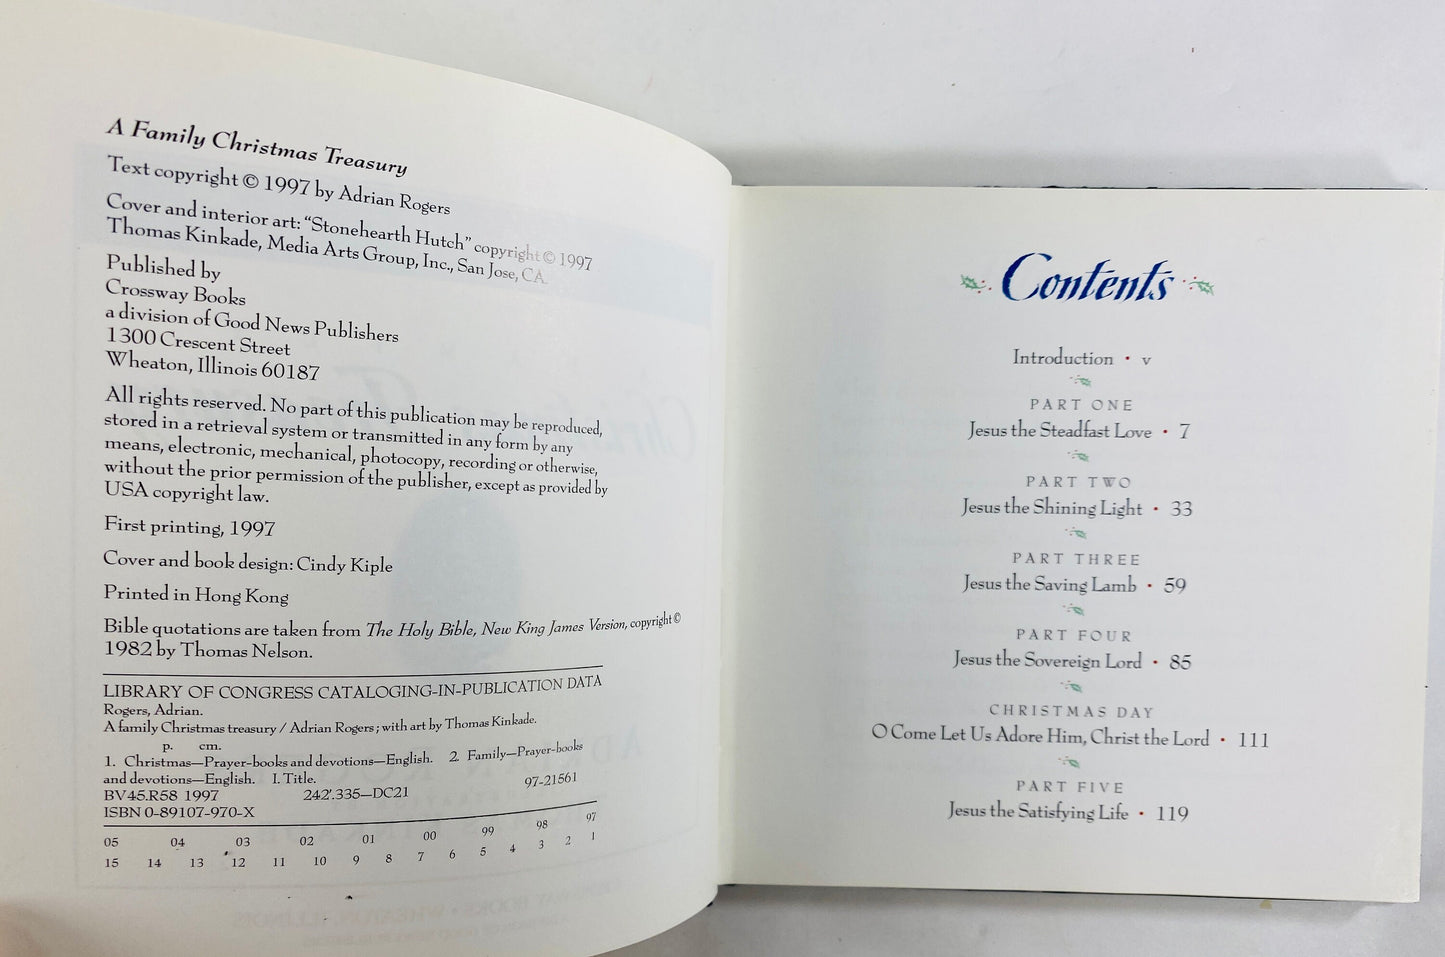 A Family Christmas Treasury
Text copyright © 1997 by Adrian Rogers
Cover and interior art: “Stonehearth Hutch” copyright © 1997
Thomas Kinkade, Media Arts Group, Inc., San Jose, CA.
Published by
Crossway Books
a division of Good News Publishers
1300 Crescent Street
Wheaton, Illinois 60187
All rights reserved. No part of this publication may be reproduced,
stored in a retrieval system or transmitted in any form by any
means, electronic, mechanical, photocopy, recording or otherwise,
without the prior permission of the publisher, except as provided by
USA copyright law.
First printing, 1997
Cover and book design: Cindy Kiple
Printed in Hong Kong
Bible quotations are taken from The Holy Bible, New King James Version, copyright ©
1982 by Thomas Nelson.
LIBRARY OF CONGRESS CATALOGING-IN-PUBLICATION DATA
Rogers, Adrian.
A family Christmas treasury / Adrian Rogers ; with art by Thomas Kinkade.
p. cm.
1. Christmas—Prayer-books and devotions—English. 2. Family—Prayer-books
and devotions—English. I. Title.
BV45.R58 1997 242'.335—DC21 97-21561
ISBN 0-89107-970-X
05 04 03 02 01 00 99 98 97
15 14 13 12 11 10 9 8 7 6 5 4 3 2 1
Contents
Introduction • v
PART ONE
Jesus the Steadfast Love • 7
PART TWO
Jesus the Shining Light • 33
PART THREE
Jesus the Saving Lamb • 59
PART FOUR
Jesus the Sovereign Lord • 85
CHRISTMAS DAY
O Come Let Us Adore Him, Christ the Lord • 111
PART FIVE
Jesus the Satisfying Life • 119